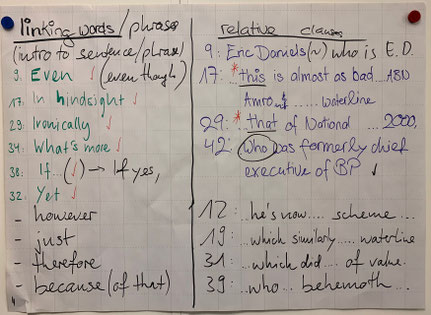 linking words/phrases
(intro to sentence/phrase)
9: Even ✓ (even though)
17: In hindsight ✓
29: Ironically ✓
34: What's more ✓
38: If... (✓) → If yes,
32: Yet ✓
- however
- just
- therefore
- because (of that)
relative clauses
9: Eric Daniels (~) who is E.D.
17: *this is almost as bad... ABN
Amro ... waterline
29: *that of National ... 2000,
42: Who was formerly chief
executive of BP ✓
12: ..he's now... scheme...
19: ..which similarly.... waterline
31: ...which did.... of value.
39: ..who... behemoth...